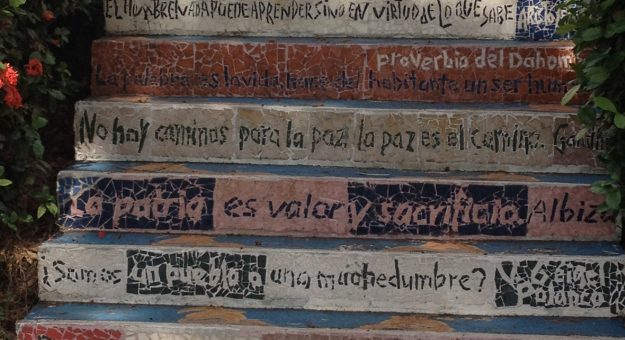 EL HOMBRE NADA PUEDE APRENDER SINO EN VIRTUD DE LO QUE SABE
proverbio del Dahom
La palabra es la vida, hace del habitante un ser hum
No hay caminos para la paz, la paz es el camino. Gandhi
La patria es valor y sacrificio Albiza
¿Somos un pueblo o una muchedumbre?
Polanco